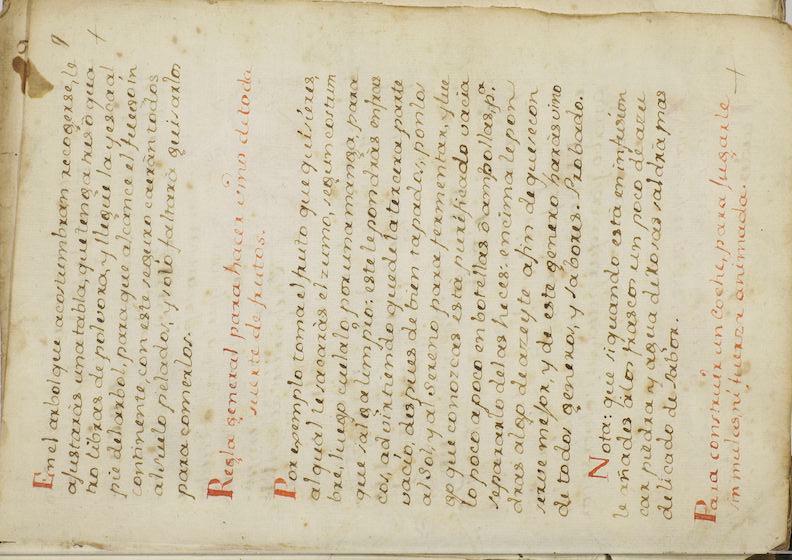 9
En el arbol que acostumbran recogerse, le
ajustaràs una tabla, que tenga tres ò qua
tro libras de polvora, y llegue la yesca al
pie del arbol, para que alcance el fuego in
continente, con este seguro caeràn todos
al suelo pelados, y solo faltarà guisarlos
para comerlos.
Regla general para hacer vino de toda
suerte de frutos.
Por exemplo toma el fruto que quisieres,
al qual le sacaràs el zumo, segun costum
bre, luego cuelalo por una manga, para
que salga limpio: este le pondràs en fras
cos, advirtiendo quede la tercera parte
vacìo despues de bien tapados, ponlos
al Sol, y al Sereno para fermentar, y lue
go que conozcas està purificado vacia
lo poco a poco en botellas ò ampollas, pª.
separarlo de las heces: encima le pon
dras algo de azeyte afin de que se con
serve mejor, y de este genero haràs vino
de todos generos, y sabores. Probado.
Nota: que si quando està en infusion
le añades al frasco un poco de azu
car piedra y agua de Rosas saldrà mas
delicado de sabor.
Para construir un Coche, para jugarle
sin mulas, ni fuerza animada.